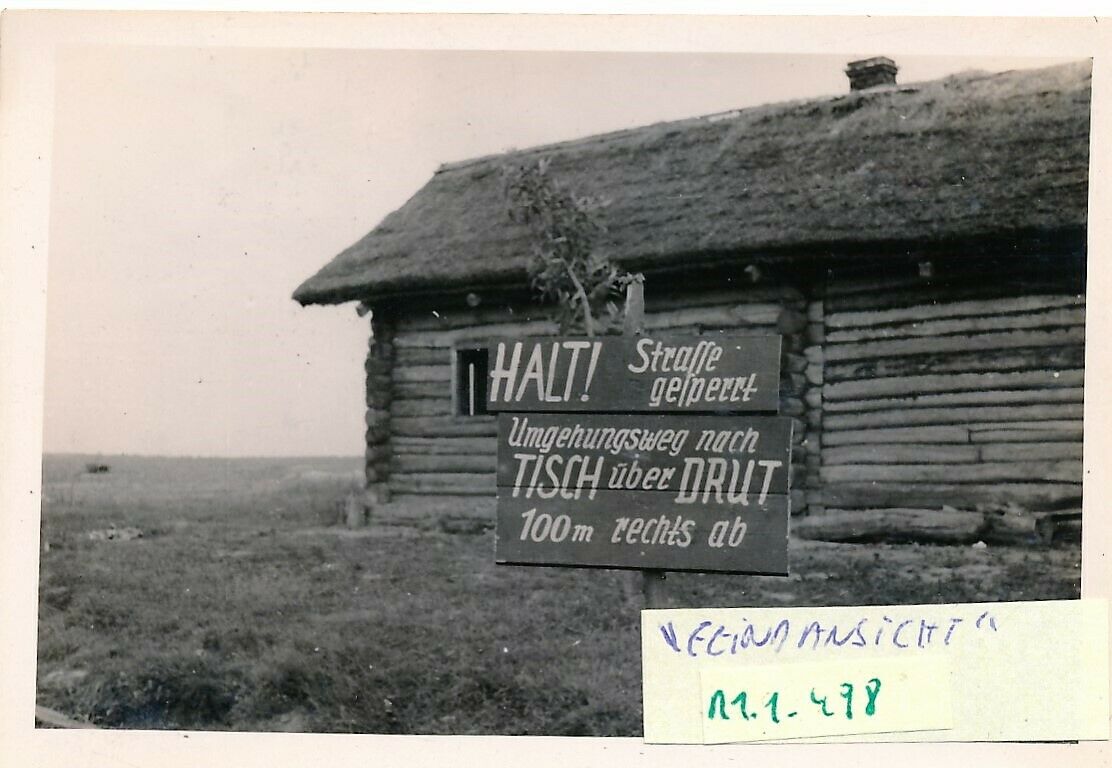 HALT! Straſſe
geſperrt
Umgehungsweg nach
TISCH über DRUT
100m rechts ab
"FEINDANSICHT"
11.1-498